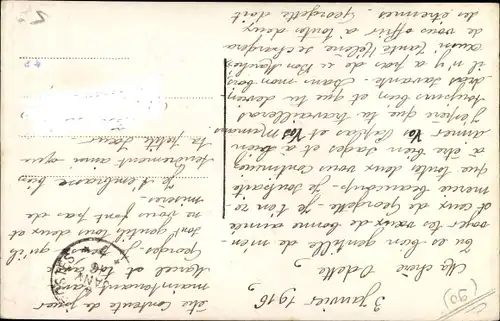 3 Janvier 1916
Ma chère Odette,
Tu es bien gentille de m'en-
voyer tes vœux de bonne année
et de Georgette. Je t'en re-
mercie beaucoup. Je souhaite
que toutes deux vous continuiez
à être bien sages et à bien
aimer Vos Papas et Vos Mamans
J'espère que tu travailleras
toujours bien et que tu deviendras
très savante. Dans mon bois
il n'y a pas de
aussi Tante Hélène se chargera
de vous offrir à toutes deux
des étrennes. Georgette doit
être contente de jouer
maintenant avec
Marcel et toi avec
Georges. Je pense qu'ils
sont gentils tous deux et
ne vous font pas de
misères.
Je t'embrasse bien
tendrement ainsi que
ta petite sœur
(90)